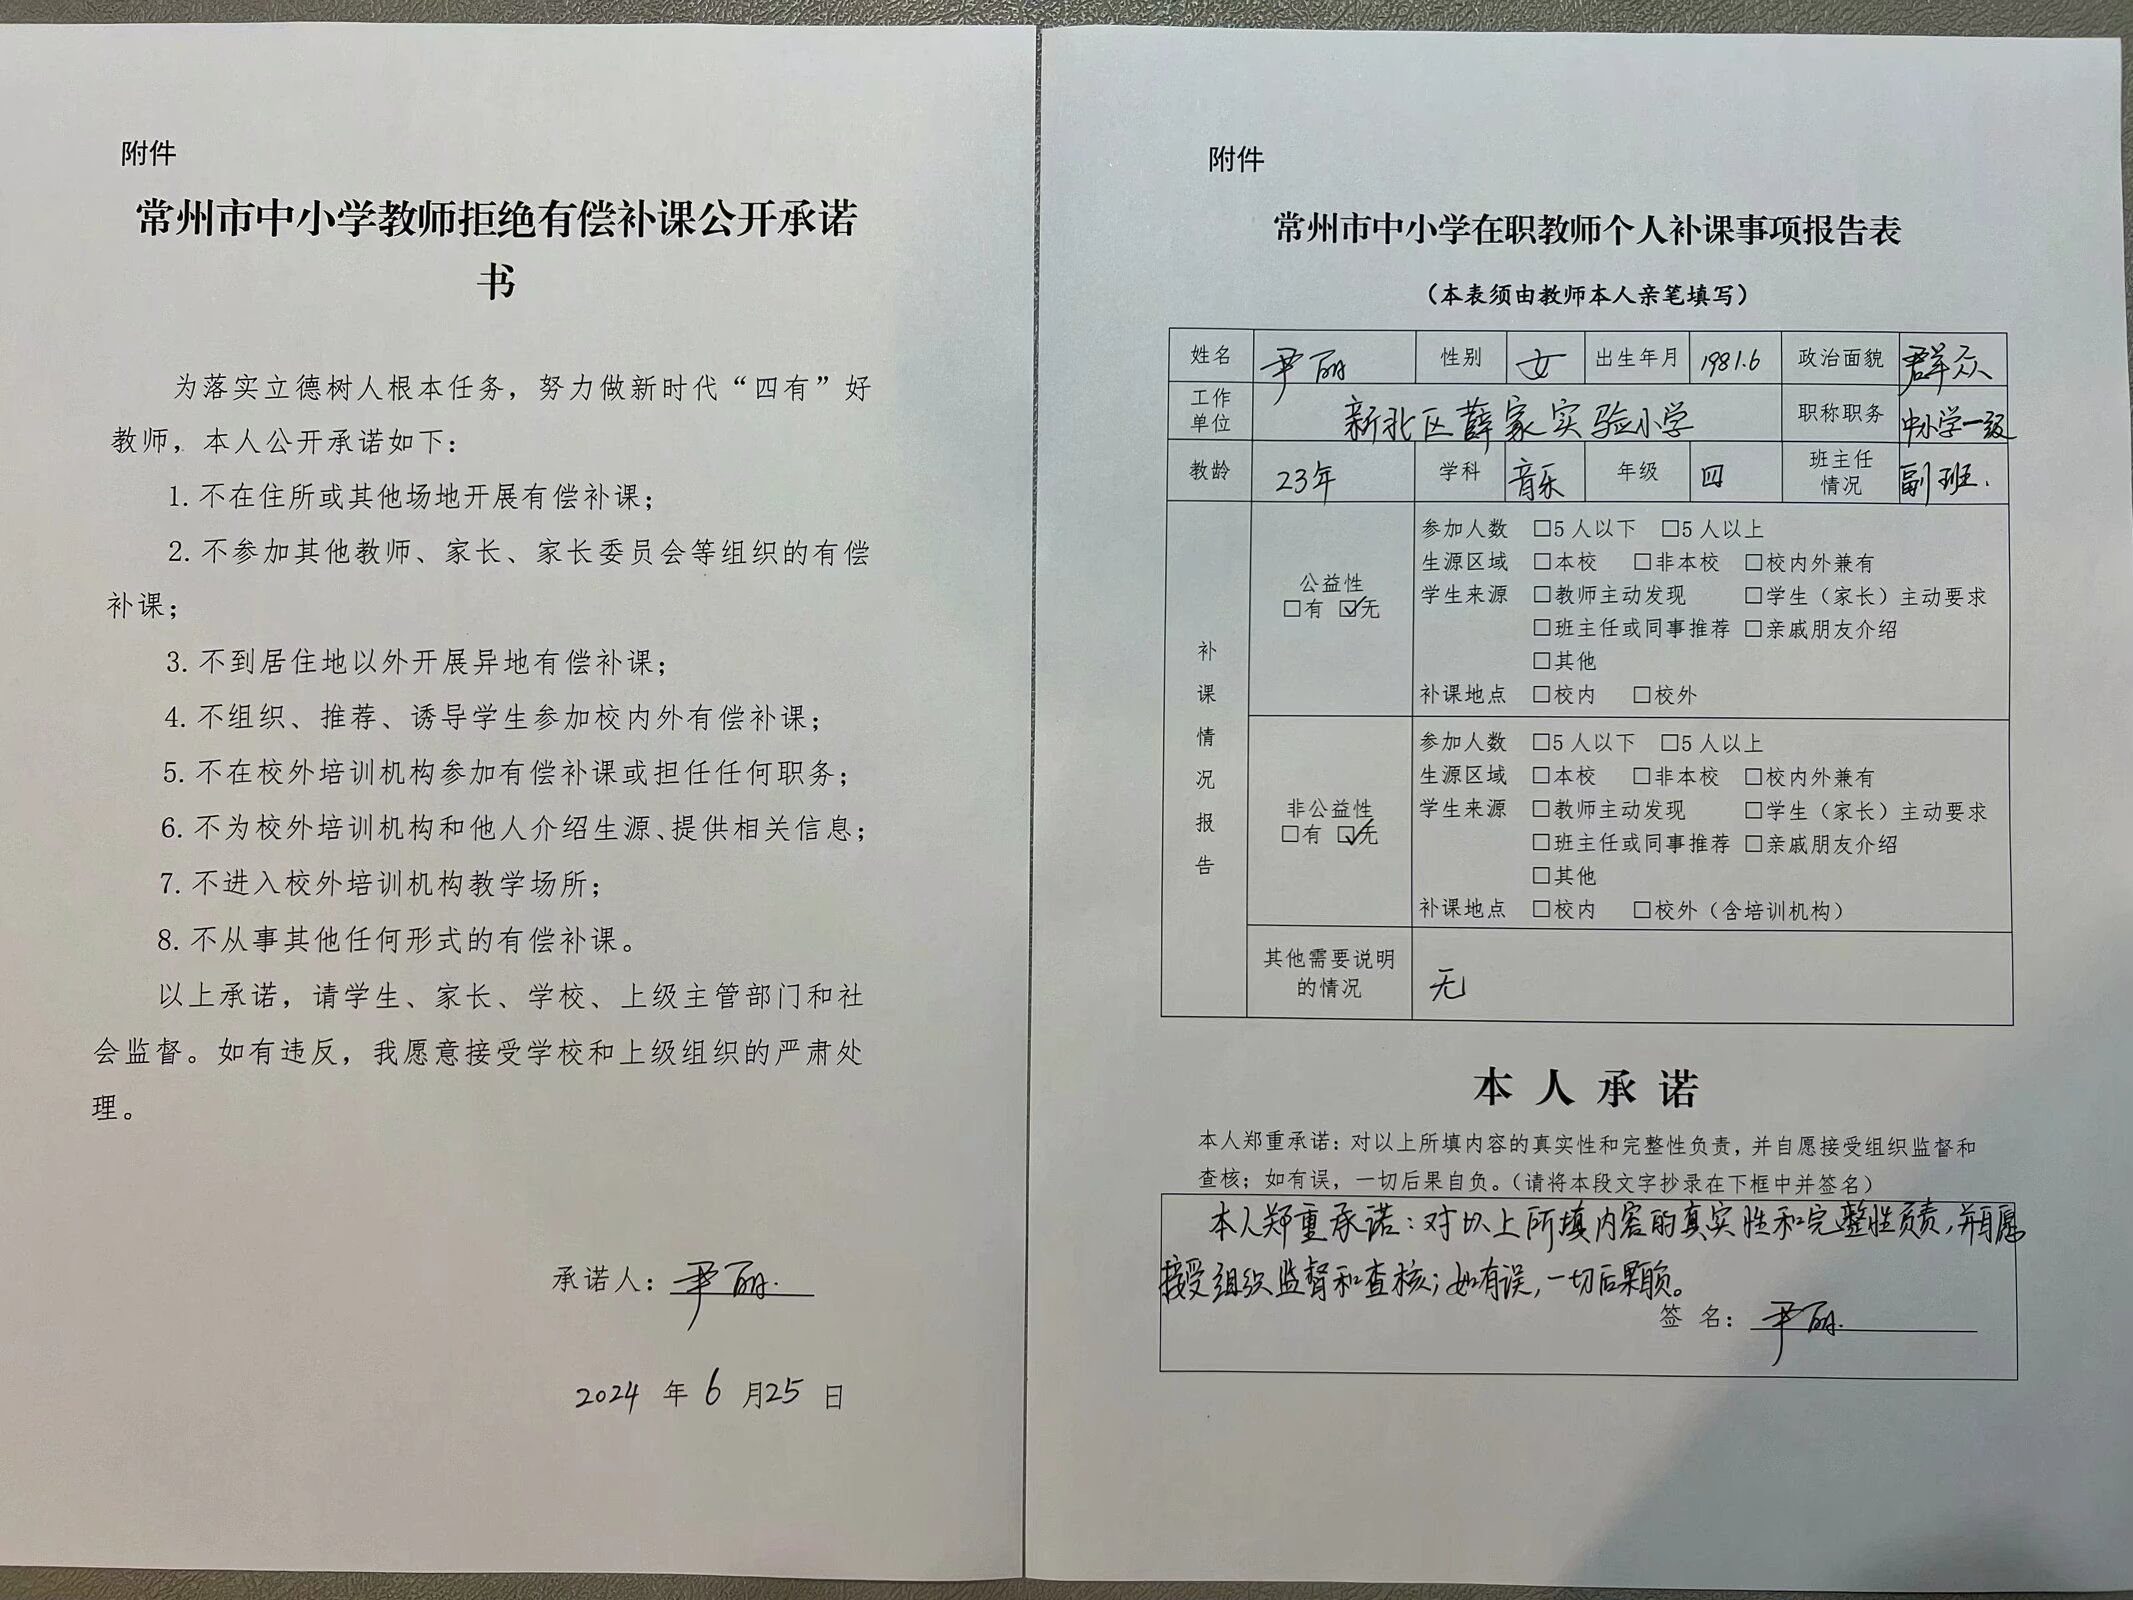 附件
常州市中小学教师拒绝有偿补课公开承诺
书
为落实立德树人根本任务，努力做新时代“四有”好
教师，本人公开承诺如下：
1. 不在住所或其他场地开展有偿补课；
2. 不参加其他教师、家长、家长委员会等组织的有偿
补课；
3. 不到居住地以外开展异地有偿补课；
4. 不组织、推荐、诱导学生参加校内外有偿补课；
5. 不在校外培训机构参加有偿补课或担任任何职务；
6. 不为校外培训机构和他人介绍生源、提供相关信息；
7. 不进入校外培训机构教学场所；
8. 不从事其他任何形式的有偿补课。
以上承诺，请学生、家长、学校、上级主管部门和社
会监督。如有违反，我愿意接受学校和上级组织的严肃处
理。
承诺人：尹丽
2024 年 6 月 25 日
附件
常州市中小学在职教师个人补课事项报告表
（本表须由教师本人亲笔填写）
姓名 尹丽 性别 女 出生年月 1981.6 政治面貌 群众
工作单位 新北区薛家实验小学 职称职务 中小学一级
教龄 23年 学科 音乐 年级 四 班主任情况 副班.
补课情况报告
公益性
□有 ☑无
参加人数 □5 人以下 □5 人以上
生源区域 □本校 □非本校 □校内外兼有
学生来源 □教师主动发现 □学生（家长）主动要求
□班主任或同事推荐 □亲戚朋友介绍
□其他
补课地点 □校内 □校外
非公益性
□有 ☑无
参加人数 □5 人以下 □5 人以上
生源区域 □本校 □非本校 □校内外兼有
学生来源 □教师主动发现 □学生（家长）主动要求
□班主任或同事推荐 □亲戚朋友介绍
□其他
补课地点 □校内 □校外（含培训机构）
其他需要说明
的情况
无
本 人 承 诺
本人郑重承诺：对以上所填内容的真实性和完整性负责，并自愿接受组织监督和
查核；如有误，一切后果自负。（请将本段文字抄录在下框中并签名）
本人郑重承诺：对以上所填内容的真实性和完整性负责，并自愿
接受组织监督和查核；如有误，一切后果自负。
签 名：尹丽.